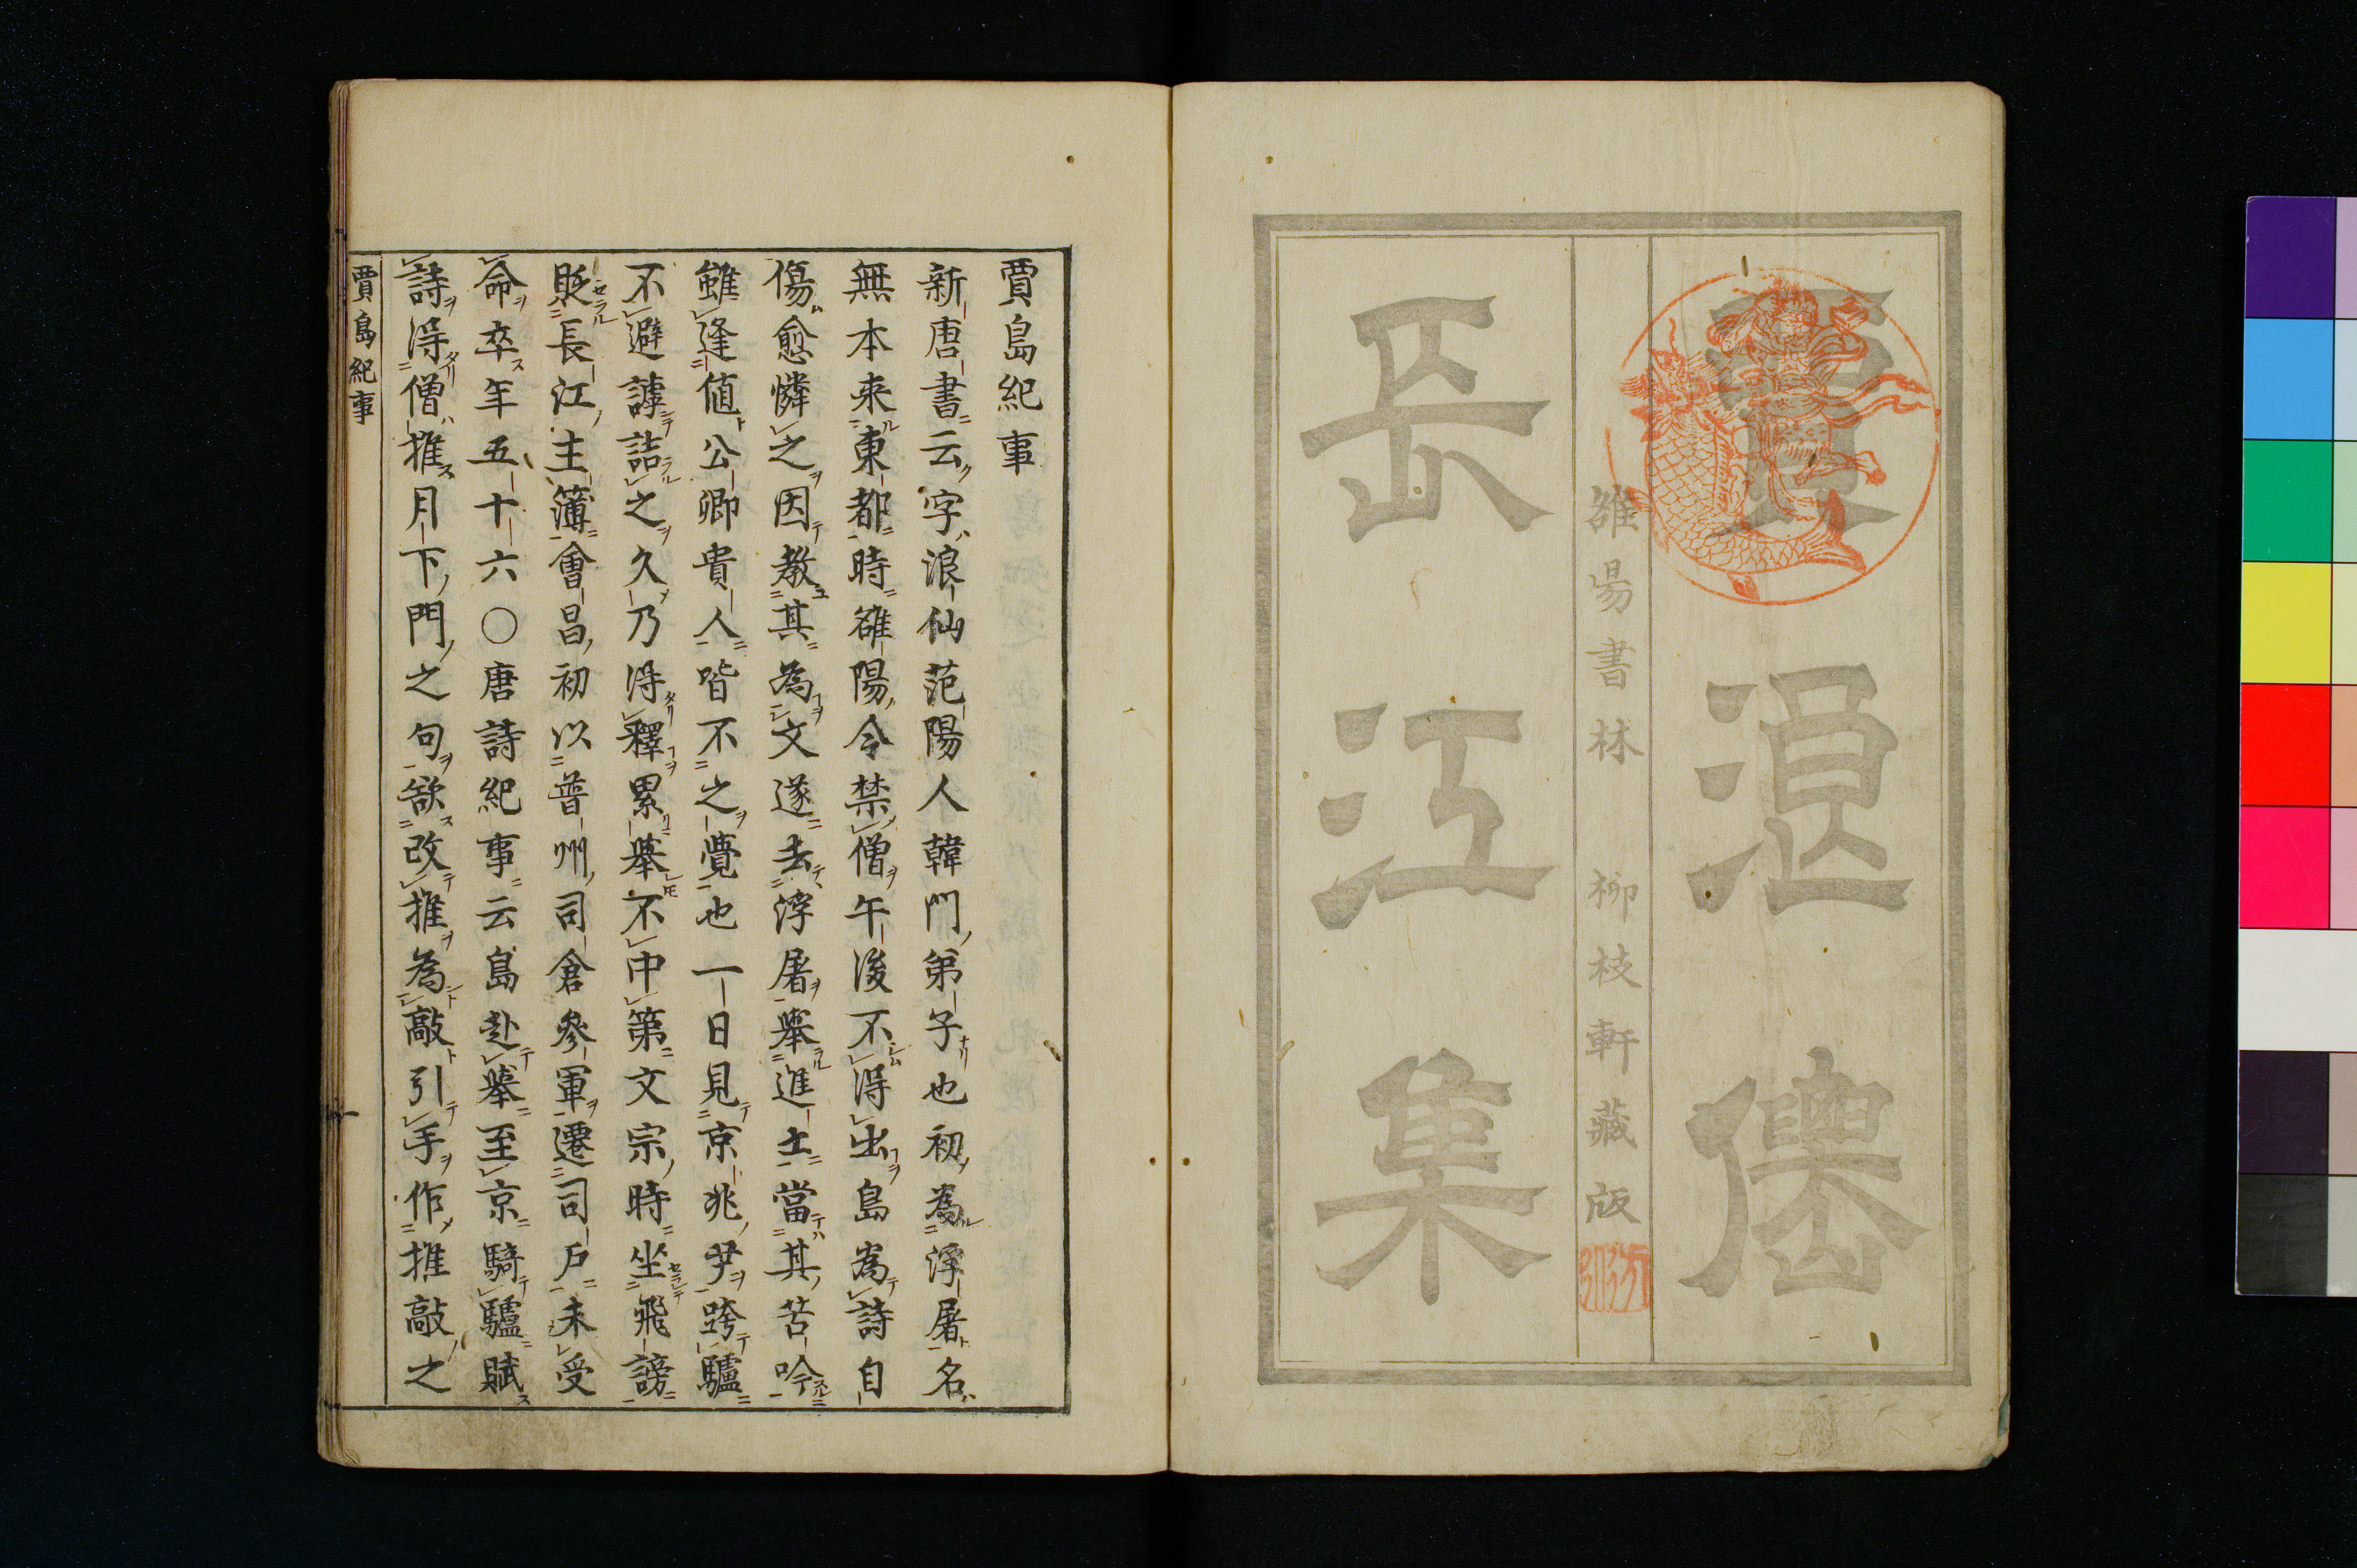 賈浪僊
雒昜書林 柳枝軒藏版
長江集
賈島紀事
新唐書云字浪仙范陽人韓門弟子也初為浮屠名
無本来東都時雒陽令禁僧午後不得出島為詩自
傷愈憐之因教其為文遂去浮屠舉進士當其苦吟
雖逢値公卿貴人皆不之覺也一日見京兆尹跨驢
不避謼詰之久乃得釋累舉不中第文宗時坐飛謗
貶長江主簿會昌初以普州司倉參軍遷司戸未受
命卒年五十六○唐詩紀事云島赴舉至京騎驢賦
詩得僧推月下門之句欲改推為敲引手作推敲之
賈島紀事